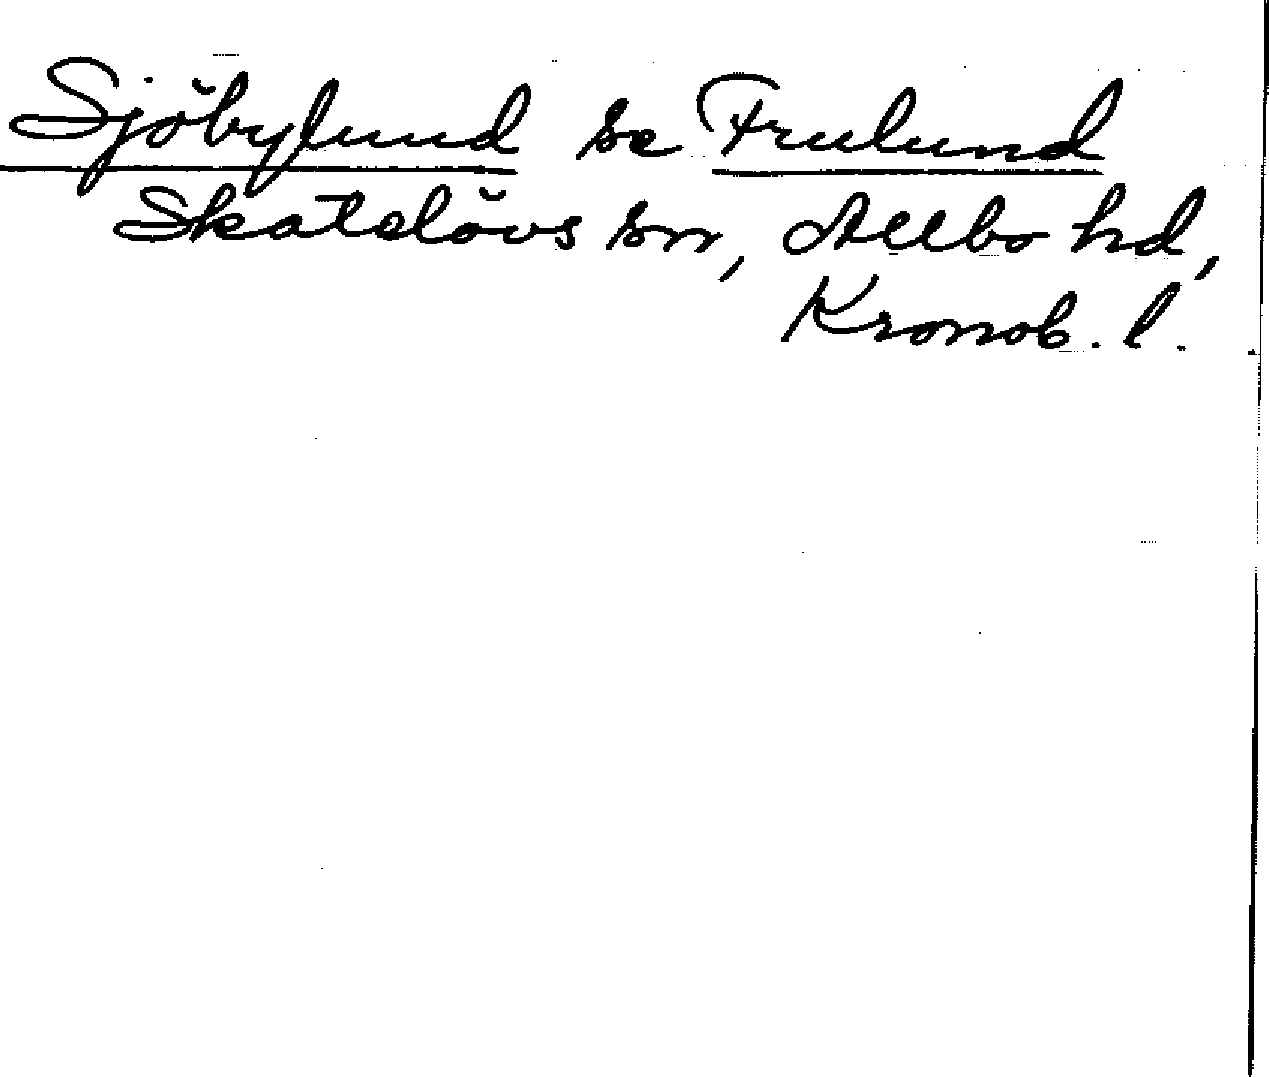 Sjöbylund se Frulund
Skatelövs sn, Allbo hd,
Kronob. l.